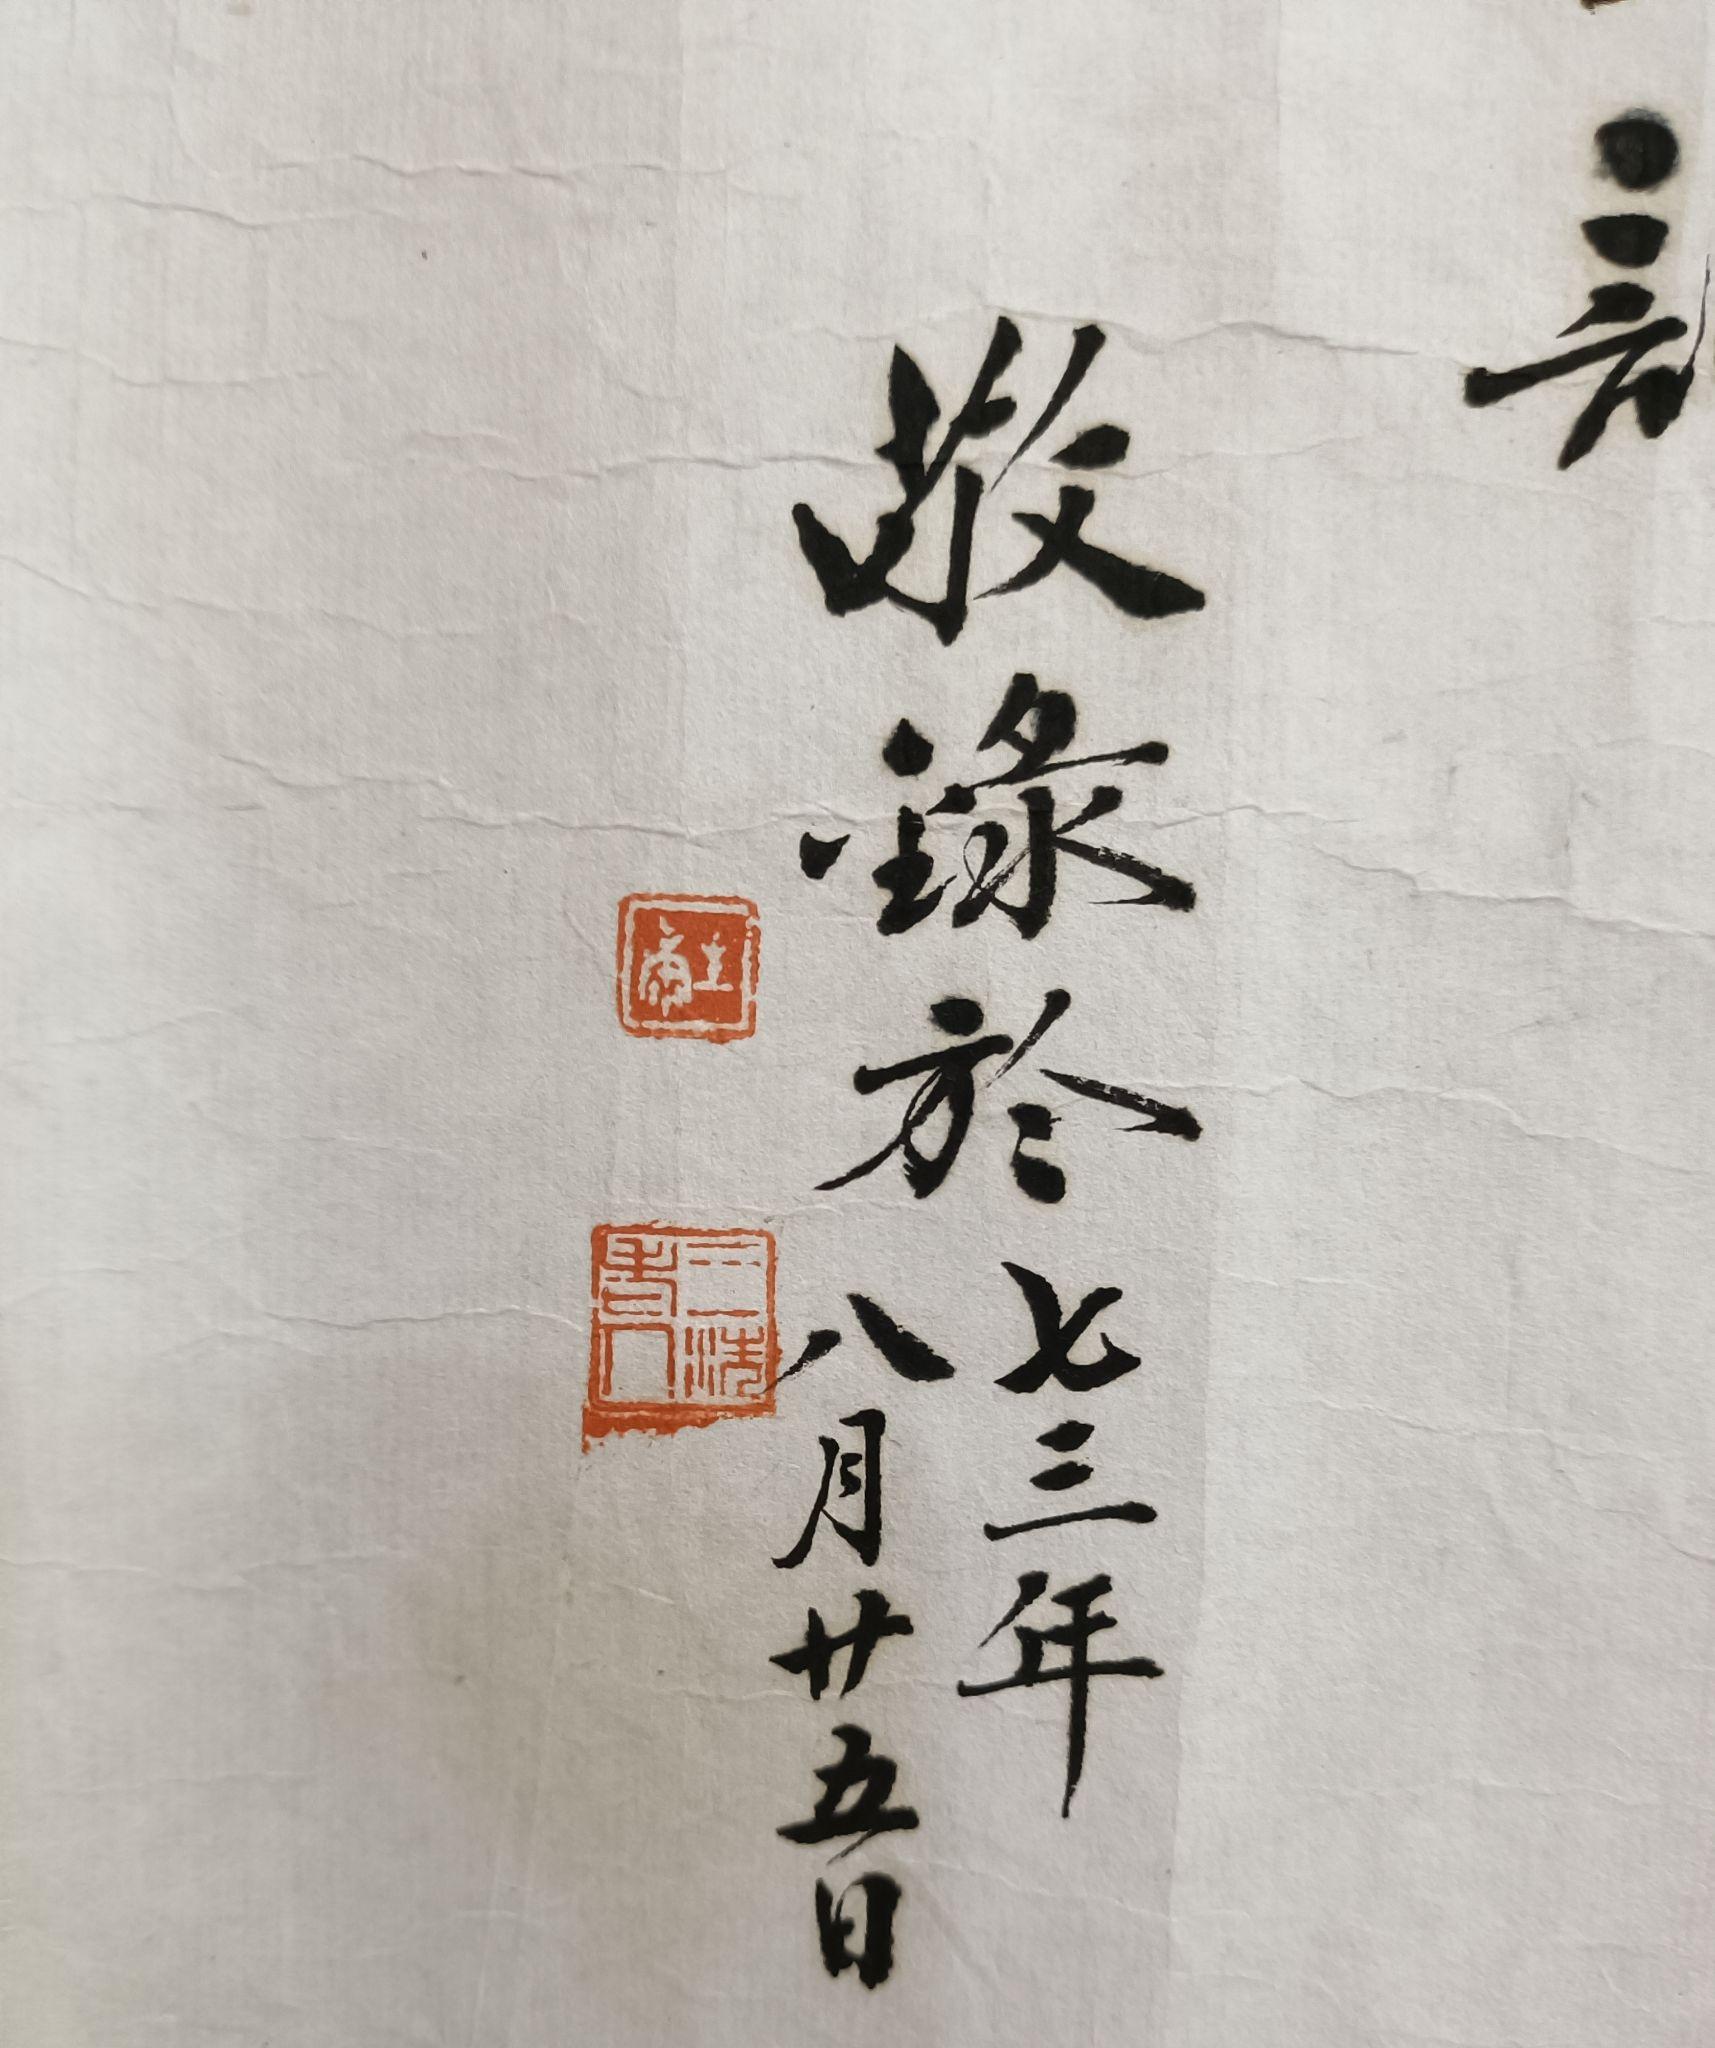 敬錄於
七三年
八月廿五日